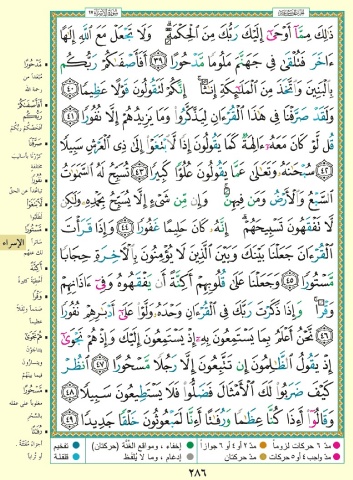 ذَٰلِكَ مِمَّآ أَوْحَىٰٓ إِلَيْكَ رَبُّكَ مِنَ ٱلْحِكْمَةِ ۗ وَلَا تَجْعَلْ مَعَ ٱللَّهِ إِلَٰهًا
ءَاخَرَ فَتُلْقَىٰ فِى جَهَنَّمَ مَلُومًا مَّدْحُورًا ٣٩ أَفَأَصْفَىٰكُمْ رَبُّكُم
بِٱلْبَنِينَ وَٱتَّخَذَ مِنَ ٱلْمَلَٰٓئِكَةِ إِنَٰثًا ۚ إِنَّكُمْ لَتَقُولُونَ قَوْلًا عَظِيمًا ٤٠
وَلَقَدْ صَرَّفْنَا فِى هَٰذَا ٱلْقُرْءَانِ لِيَذَّكَّرُوا۟ وَمَا يَزِيدُهُمْ إِلَّا نُفُورًا ٤١
قُل لَّوْ كَانَ مَعَهُۥٓ ءَالِهَةٌ كَمَا يَقُولُونَ إِذًا لَّٱبْتَغَوْا۟ إِلَىٰ ذِى ٱلْعَرْشِ سَبِيلًا
٤٢ سُبْحَٰنَهُۥ وَتَعَٰلَىٰ عَمَّا يَقُولُونَ عُلُوًّا كَبِيرًا ٤٣ تُسَبِّحُ لَهُ ٱلسَّمَٰوَٰتُ
ٱلسَّبْعُ وَٱلْأَرْضُ وَمَن فِيهِنَّ ۚ وَإِن مِّن شَىْءٍ إِلَّا يُسَبِّحُ بِحَمْدِهِۦ وَلَٰكِن
لَّا تَفْقَهُونَ تَسْبِيحَهُمْ ۗ إِنَّهُۥ كَانَ حَلِيمًا غَفُورًا ٤٤ وَإِذَا قَرَأْتَ
ٱلْقُرْءَانَ جَعَلْنَا بَيْنَكَ وَبَيْنَ ٱلَّذِينَ لَا يُؤْمِنُونَ بِٱلْءَاخِرَةِ حِجَابًا
مَّسْتُورًا ٤٥ وَجَعَلْنَا عَلَىٰ قُلُوبِهِمْ أَكِنَّةً أَن يَفْقَهُوهُ وَفِىٓ ءَاذَانِهِمْ
وَقْرًا ۚ وَإِذَا ذَكَرْتَ رَبَّكَ فِى ٱلْقُرْءَانِ وَحْدَهُۥ وَلَّوْا۟ عَلَىٰٓ أَدْبَٰرِهِمْ نُفُورًا
٤٦ نَّحْنُ أَعْلَمُ بِمَا يَسْتَمِعُونَ بِهِۦٓ إِذْ يَسْتَمِعُونَ إِلَيْكَ وَإِذْ هُمْ نَجْوَىٰٓ
إِذْ يَقُولُ ٱلظَّٰلِمُونَ إِن تَتَّبِعُونَ إِلَّا رَجُلًا مَّسْحُورًا ٤٧ ٱنظُرْ
كَيْفَ ضَرَبُوا۟ لَكَ ٱلْأَمْثَالَ فَضَلُّوا۟ فَلَا يَسْتَطِيعُونَ سَبِيلًا ٤٨
وَقَالُوٓا۟ أَءِذَا كُنَّا عِظَٰمًا وَرُفَٰتًا أَءِنَّا لَمَبْعُوثُونَ خَلْقًا جَدِيدًا ٤٩
مدّ ٦ حركات لزوماً
مدّ ٢ أو ٤ أو ٦ جوازاً
إخفاء، ومواقع الغُنَّة (حركتان)
تفخيم
مدّ واجب ٤ أو ٥ حركات
مدّ حركتان
إدغام، وما لا يُلفَظ
قلقلة
٢٨٦
مَدْحُورًا
أَفَأَصْفَىٰكُمْ رَبُّكُم
صَرَّفْنَا
نُفُورًا
لَّٱبْتَغَوْا۟
مَّسْتُورًا
الإسراء
أَكِنَّةً
وَقْرًا
هُمْ نَجْوَىٰٓ
مَّسْحُورًا
رُفَٰتًا